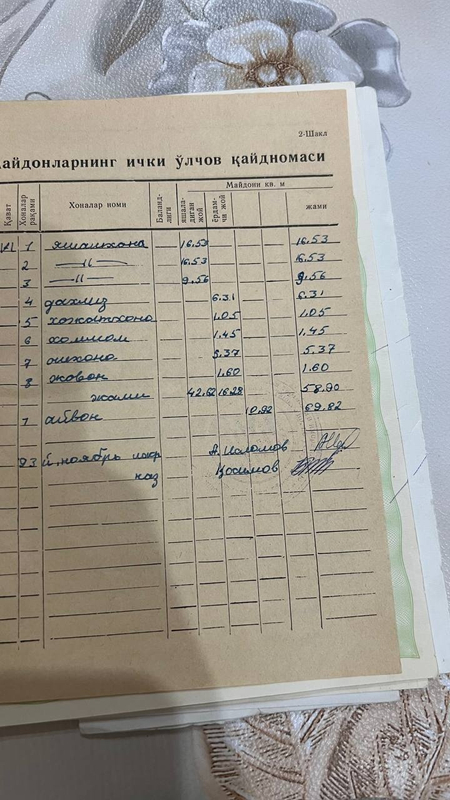 2-Шакл
айдонларнинг ички ўлчов қайдномаси
Қават Хоналар рақами Хоналар номи Баланд-лиги Майдони кв. м
яшала-диган жой ёрдам-чи жой жами
1 яшашхона 16.53 16.53
2 —"— 16.53 16.53
3 —"— 9.56 9.56
4 дахлиз 6.31 6.31
5 хожатхона 1.05 1.05
6 хаммом 1.45 1.45
7 ошхона 5.37 5.37
8 жавон 1.60 1.60
жами 42.62 16.28 58.90
1 айвон 10.92 69.82
23 й. ноябрь А. Исломов
Қосимов